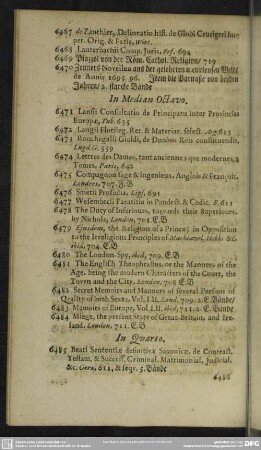 6467 de Zanthier, Delineatio hist. de Globi Crucigeri Imper. Orig. & Fatis, Witt.
6468 Lauterbachii Comp. Juris, Bas. 694
6469 Piazol von der Röm. Cathol. Religion/ 719
6470 Zenners Novellen aus der gelehrten u. curieusen Welt
de Annis 1695. 96. Item die Parnasse von beyden
Jahren/ 2. starcke Bände
In Median Octavo.
6471 Lansii Consultatio de Principatu inter Provincias
Europæ, Tub. 635
6472 Langii Florileg. Rer. & Materiar. select. Arg. 613
6473 Roschegallii Gioldi, de Donbus Reis constituendis,
Lugd. G. 559
6474 Lettres des Dames, tant anciennes que modernes, 2
Tomes. Paris, 642
6475 Compagnon sage & ingenieux, Anglois & François,
Londres, 707. F. B
6476 Smetii Prosodia, Lips. 691
6477 Wesembecii Paratitla in Pandect. & Codic. F. 611
6478 The Duty of Inferiours, towards their Superiours,
by Nichols, London, 701. E. B
6479 Ejusdem, the Religion of a Prince; in Opposition
to the Irreligious Principles of Machiavel, Hobbs &c.
ibid, 704. E. B
6480 The London Spy, ibid, 709. E. B
6481 The Englisch Theophrastus, or the Manners of the
Age, being the modern Characters of the Court, the
Town and the City. London, 708 E. B
6482 Secret Memoirs and Manners of several Persons of
Qvality of both Sexes, Vol. I. II. Lond. 709. 2. E. Bände/
6483 Memoirs of Europe, Vol. I. II. ibid, 711. 2. E. Bände
6484 Minge, the present State of Great-Britain, and Ireland. London, 711. E. B
In Quarto.
6485 Beati Sententiæ definitivæ Saxonicæ, de Contract.
Testam. & Success. Criminal. Matrimonial. Judicial.
&c. Gera, 611, & seqv. 5. Bände
6486